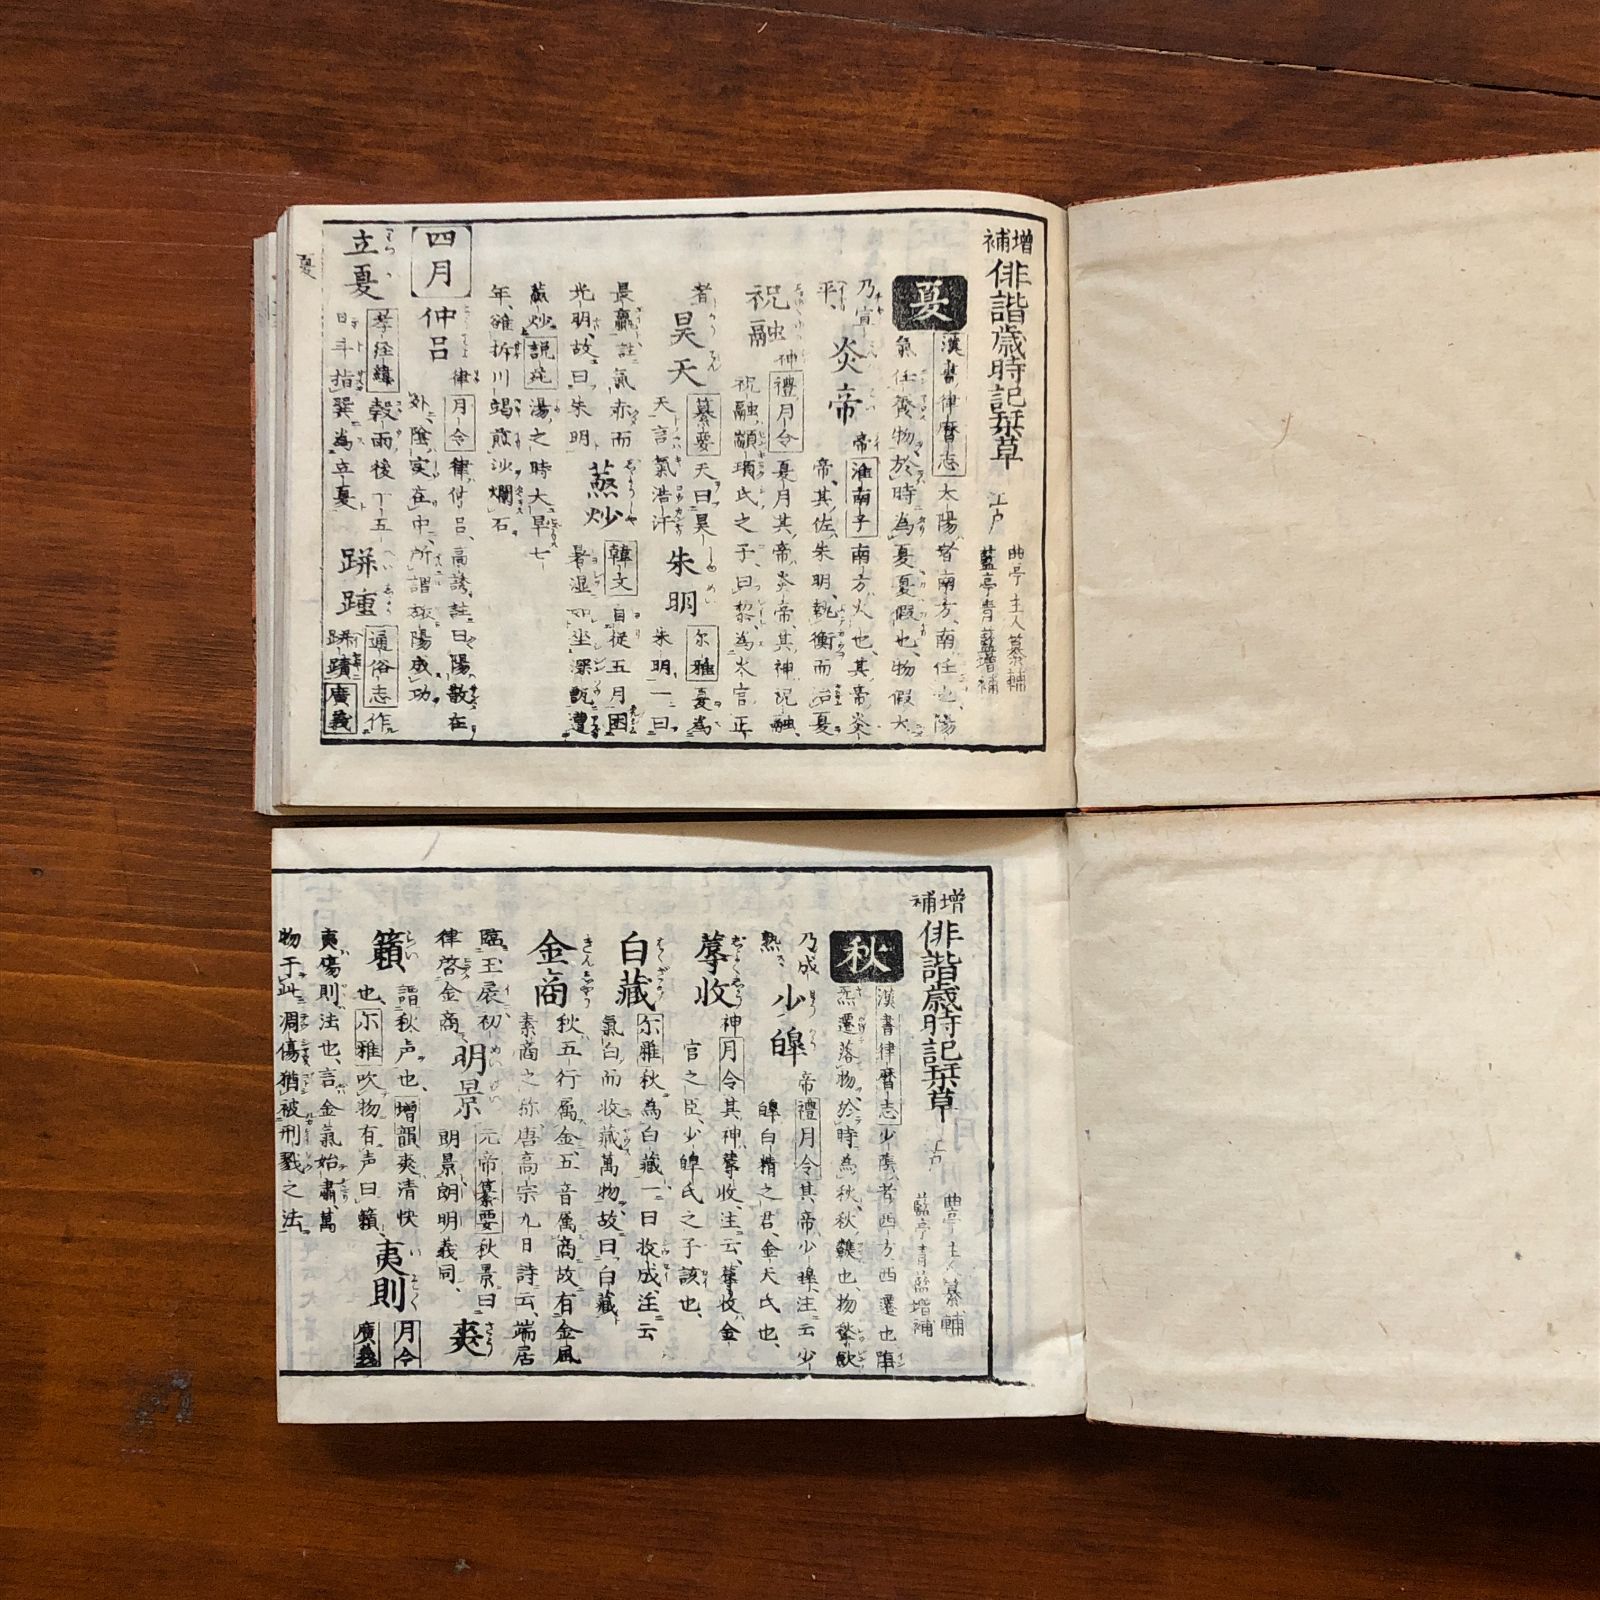 増補
俳諧歳時記栞草
江戸
曲亭主人纂輔
藍亭青藍増補
夏
漢書律暦志
太陽者南方、南任也、陽
氣任養物於時為夏夏假也、物假大
乃宣
平、
炎帝
帝
淮南子
南方火也、其帝炎
帝、其佐朱明、執衡而治夏
祝融
神
禮月令
夏月其帝炎帝、其神祝融、
祝融顓頊氏之子、曰黎、為火官正
者
昊天
纂要
天曰昊
天言氣浩汗
朱明
尓雅
夏為
朱明、一曰
最、註氣赤而
光明、故曰朱明
韓文
自從五月困
暑湿如坐深甑遭
蒸炒
説苑
湯之時大旱七
年、雒拆川竭煎沙爛石、
四月
仲呂
律
月令
律仲呂、高誘註曰陽散在
外、陰実在中、所謂旅陽成功
立夏
孝経緯
穀雨後十五
日斗指巽為立夏
通俗志
作
廣義
夏
増補
俳諧歳時記栞草
江戸
曲亭主人纂輔
藍亭青藍増補
秋
漢書律暦志
少陰者西方西遷也陰
氣遷落物於時為秋秋也、物
乃成
熟
少皞
帝
禮月令
其帝少皞注云少
皞白精之君、金天氏也、
蓐收
神
月令
其神蓐收、注云蓐收金
官之臣、少皞氏之子該也、
白藏
尓雅
秋為白藏一曰收成、注云
氣白而收藏萬物故曰白藏
金商
秋五行属金、五音属商故有金風
素商之称、唐高宗九日詩云、端居
臨玉扆初
律啓金商
明景
元帝
纂要
秋景曰
朗景朗明義同、
爽
籟
謂秋声也、
増韻
爽清快
也、
尓雅
吹物有声曰籟、
夷則
月令
廣義
夷傷則法也、言金氣始肅、萬
物于此凋傷猶被刑戮之法